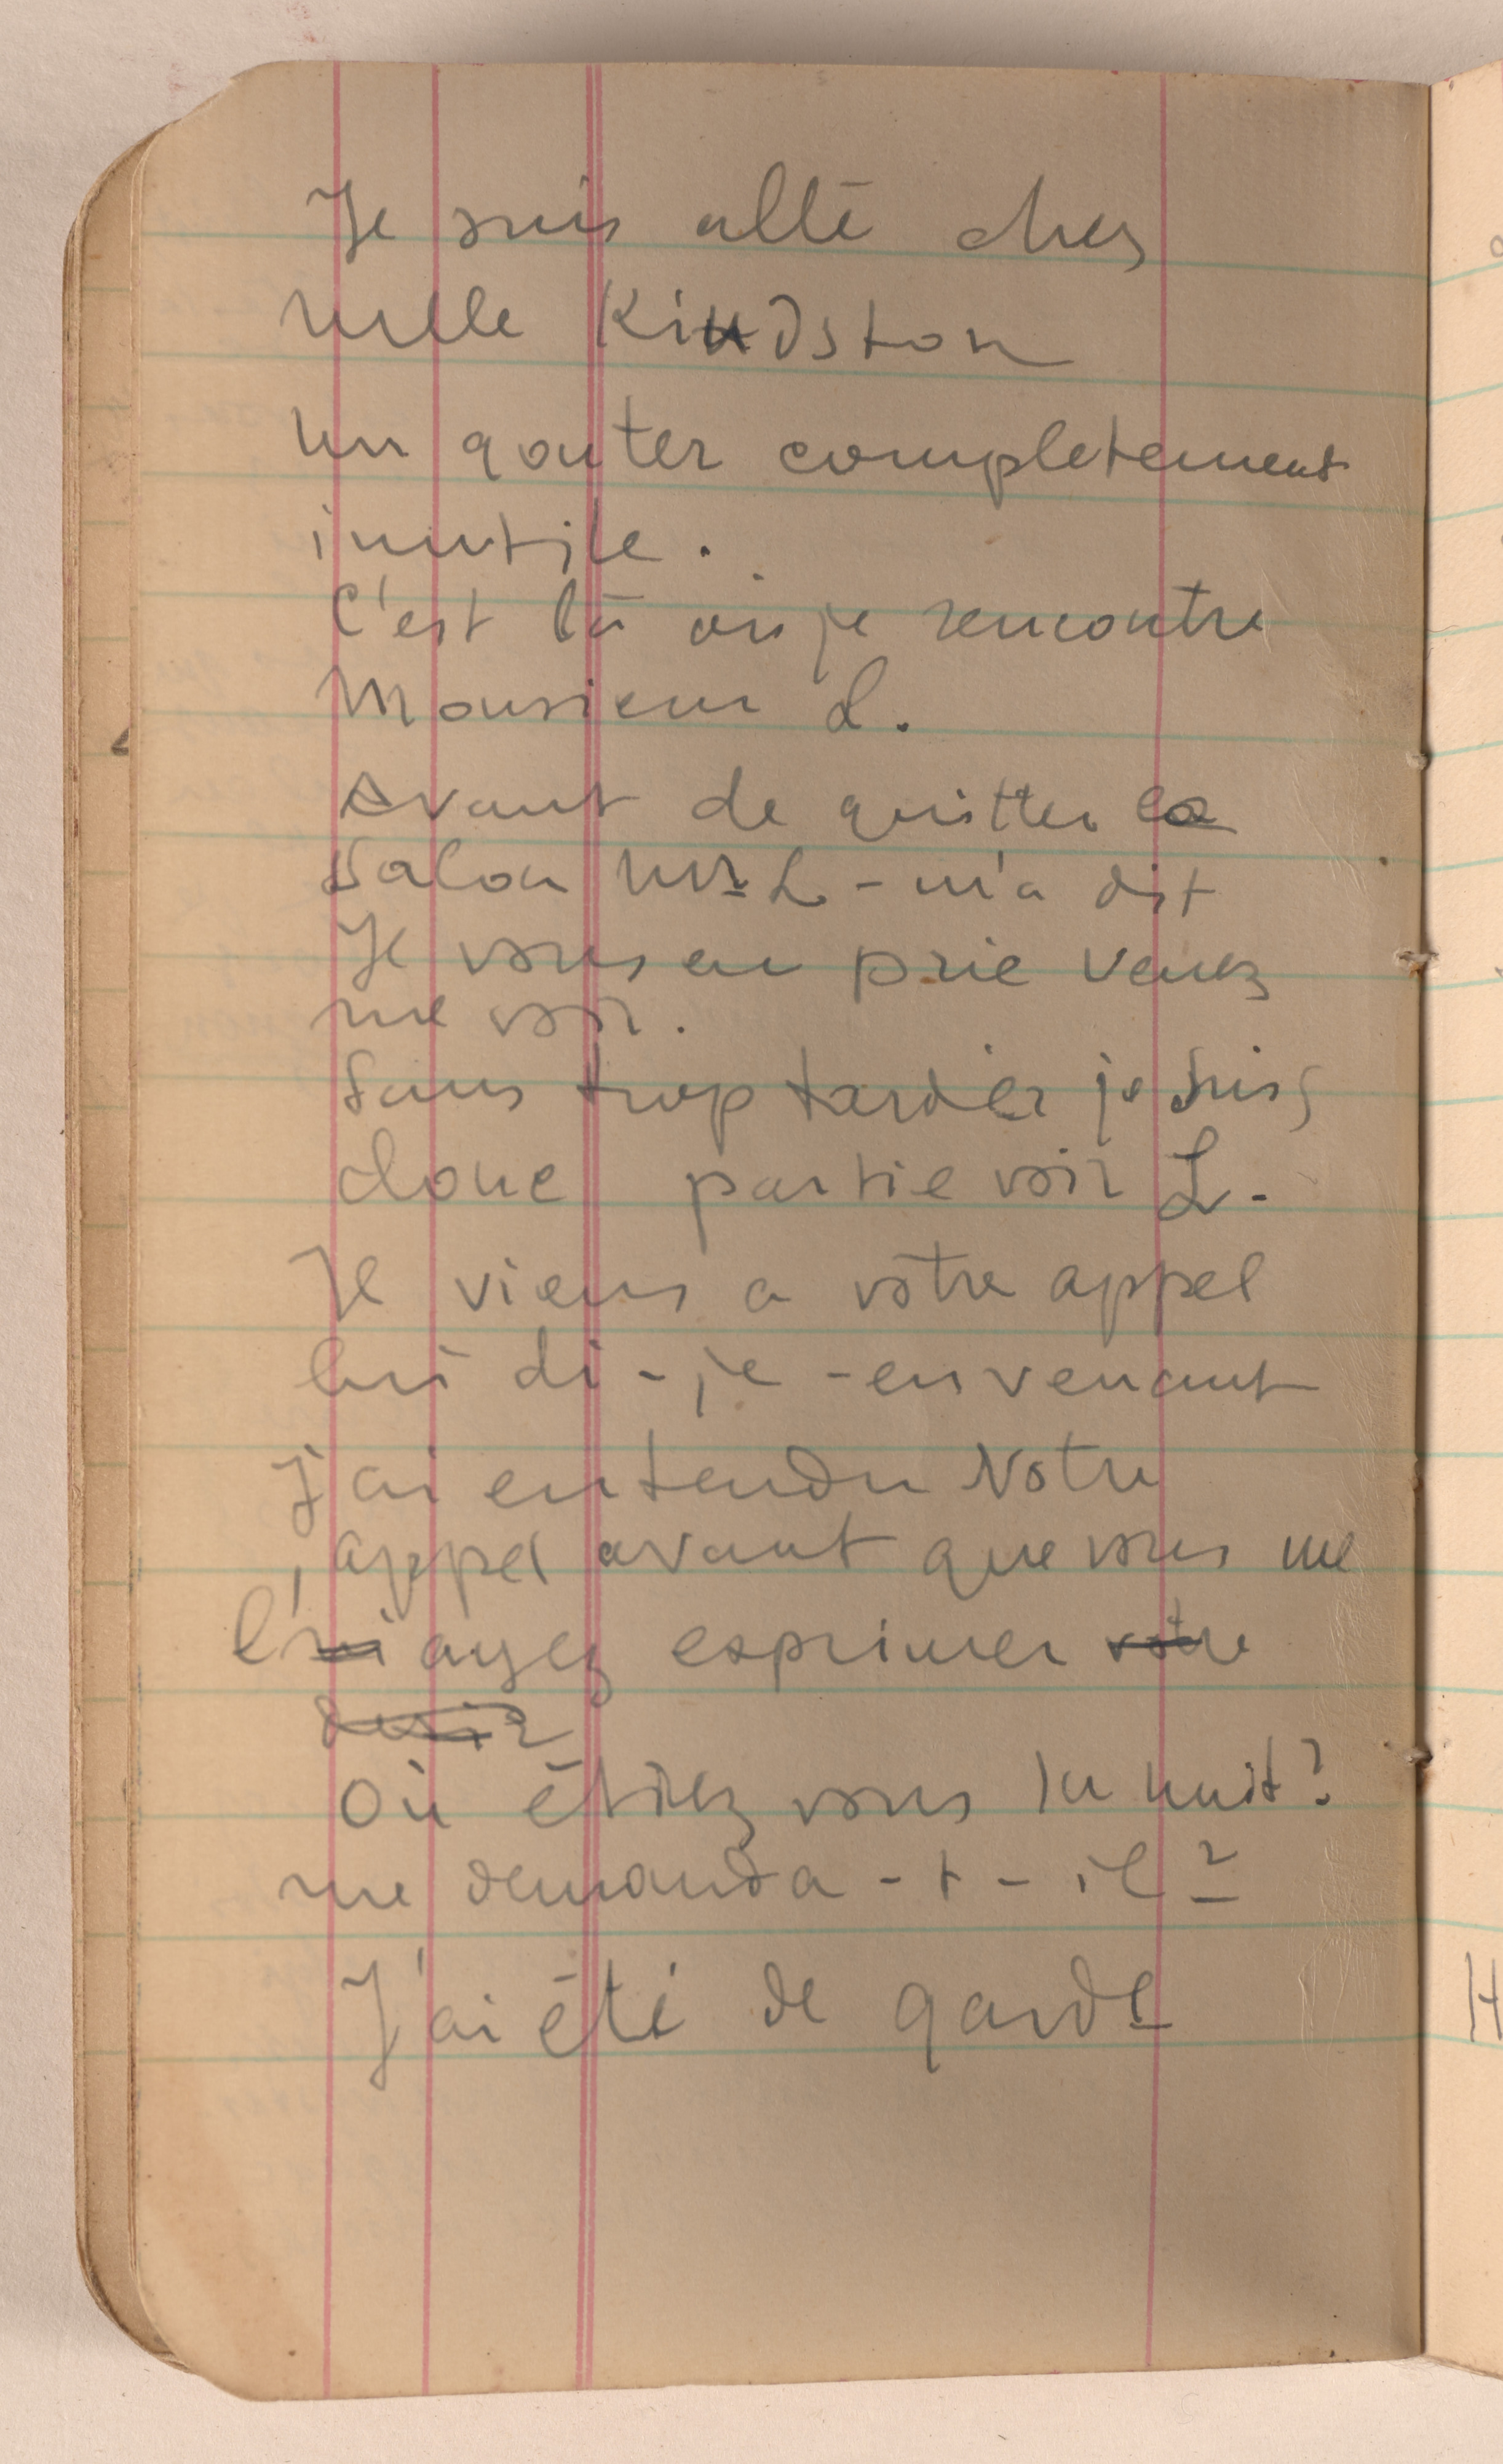 Je suis allé chez
Melle Kindston
un gouter completement
inutile.
C'est là où je rencontre
Monsieur L.
Avant de quitter la
salon Mr L - m'a dit
Je vous en prie venez
me voir.
Sans trop tarder je suis
donc partie voir L.
Je viens a votre appel
lui di-je - en venant
J'ai entendu Votre
appel avant que vous me
l'ayez exprimer votre
desir
Où étiez vous la nuit?
me demanda-t-il?
J'ai été de garde
H